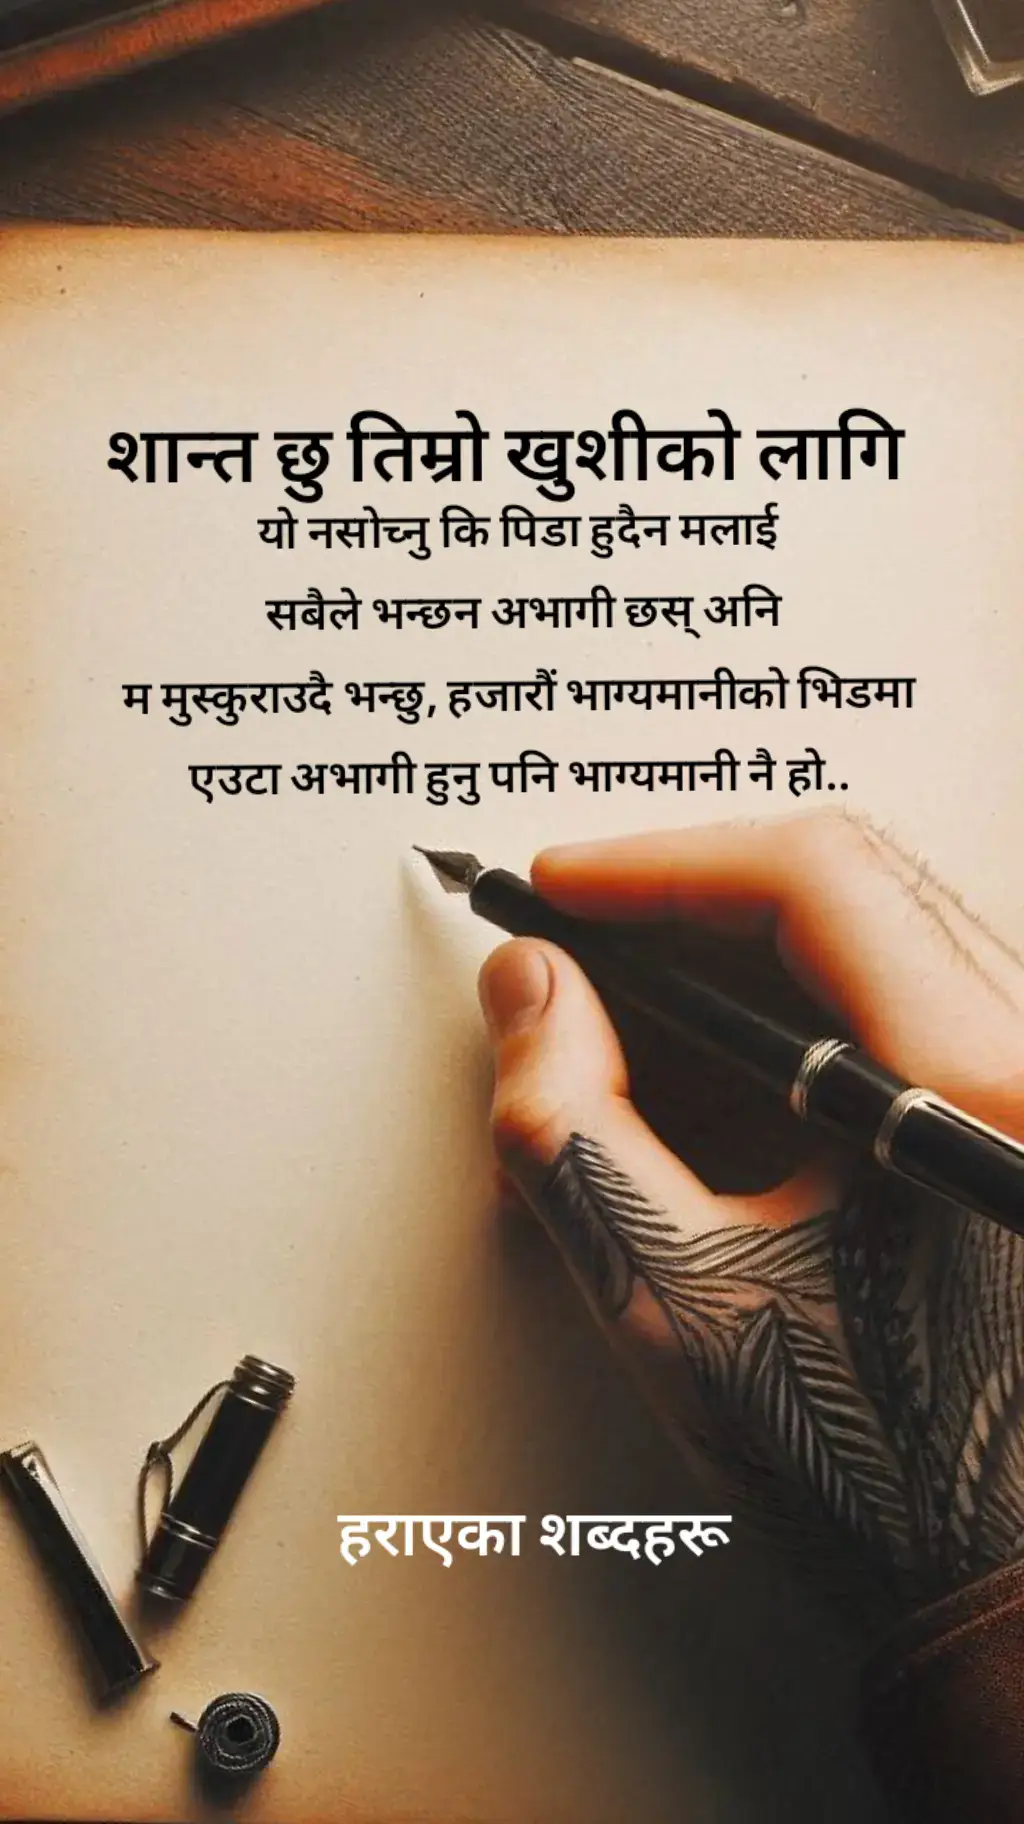 शान्त छु तिम्रो खुशीको लागि
यो नसोच्नु कि पिडा हुदैन मलाई
सबैले भन्छन अभागी छस् अनि
म मुस्कुराउदै भन्छु, हजारौं भाग्यमानीको भिडमा
एउटा अभागी हुनु पनि भाग्यमानी नै हो..
हराएका शब्दहरू